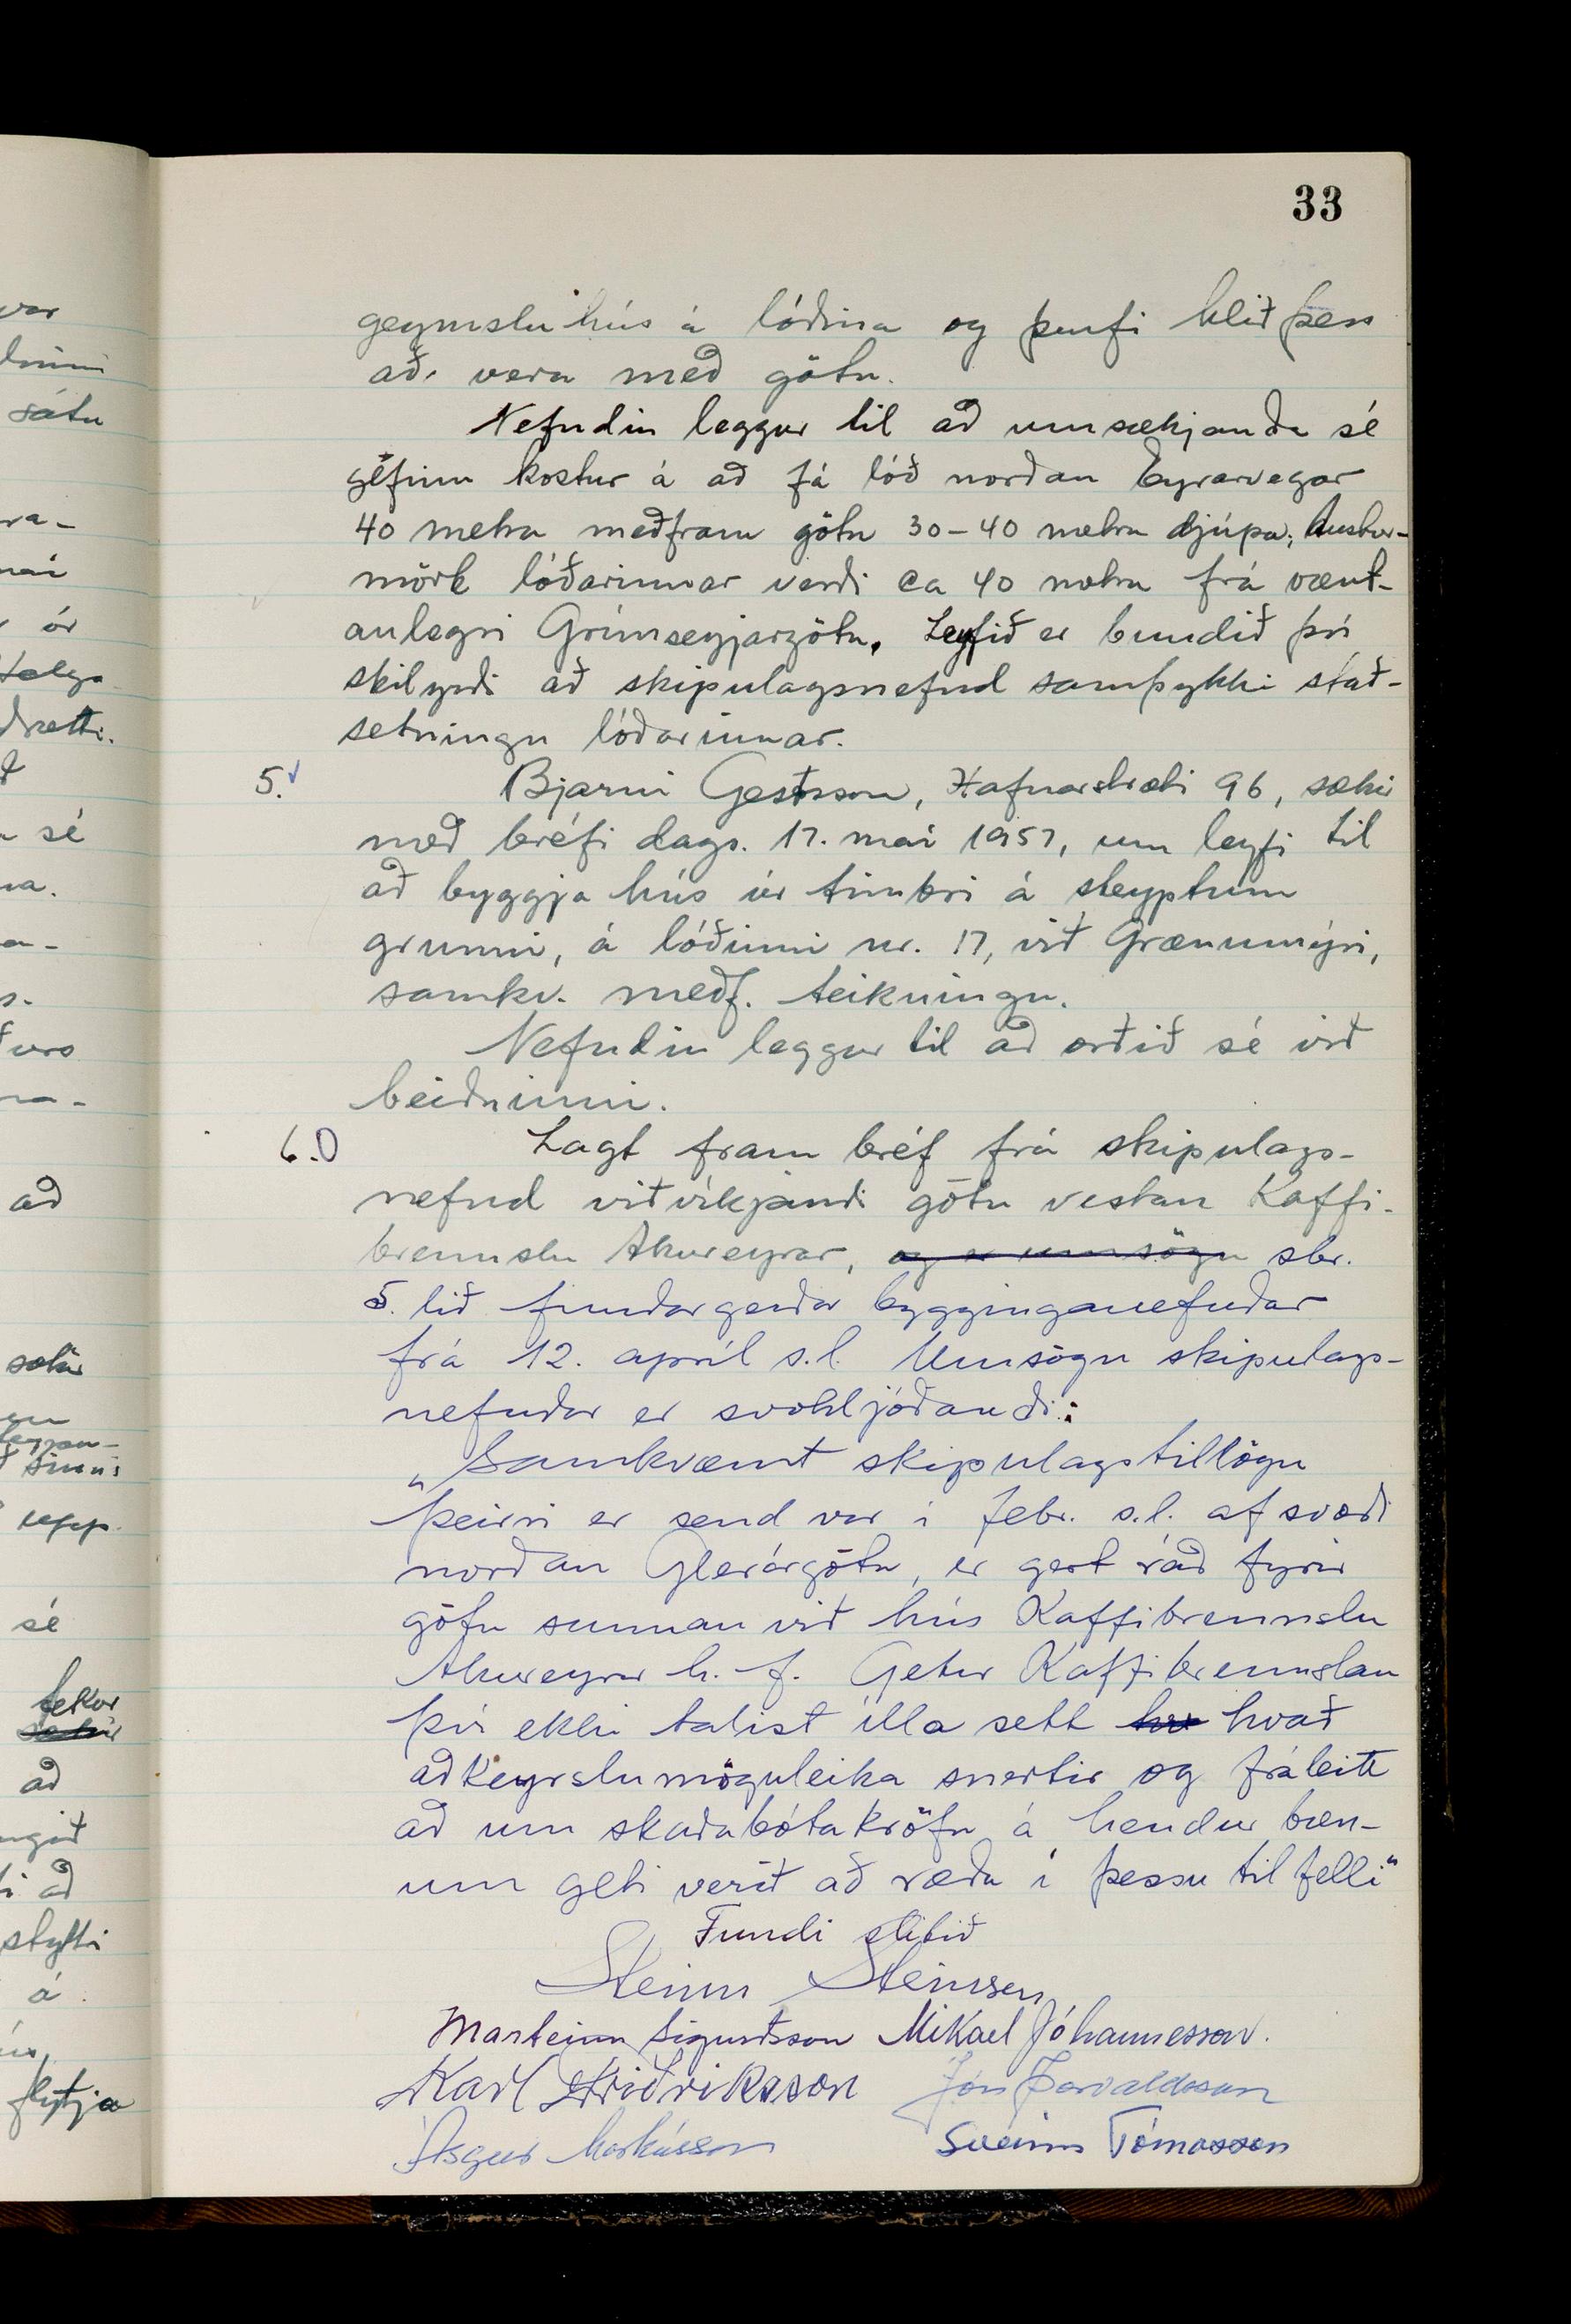 33
geymsluhús á lóðina og þurfi hlið þess
að vera með götu.
Nefndin leggur til að umsækjanda sé
gefinn kostur á að fá lóð norðan Eyrarvegar
40 metra meðfram götu 30-40 metra djúpa; Austur-
mörk lóðarinnar verði ca 40 metra frá vænt-
anlegri Grímseyjargötu. Leyfið er bundið því
skilyrði að skipulagsnefnd samþykki stað-
setningu lóðarinnar.
5. Bjarni Gestsson, Hafnarstræti 96, sækir
með bréfi dags. 17. maí 1957, um leyfi til
að byggja hús úr timbri á steyptum
grunni, á lóðinni nr. 17, við Grænumýri,
samkv. meðf. teikningu.
Nefndin leggur til að orðið sé við
beiðninni.
6. Lagt fram bréf frá skipulags-
nefnd viðvíkjandi götu vestan Kaffi-
brennslu Akureyrar, og er umsögn sbr.
5. lið fundargerðar bygginganefndar
frá 12. apríl s.l. Umsögn skipulags-
nefndar er svohljóðandi:
„Samkvæmt skipulagstillögu
þeirri er send var í febr. s.l. af svæði
norðan Glerárgötu, er gert ráð fyrir
götu sunnan við hús Kaffibrennslu
Akureyrar h.f. Getur Kaffibrennslan
því ekki talist illa sett hvað
aðkeyrslumöguleika snertir og fráleitt
að um skaðabótakröfu á hendur bæn-
um geti verið að ræða í þessu tilfelli"
Fundi slitið
Steinn Steinsen
Marteinn Sigurðsson Mikael Jóhannesson.
Karl Friðriksson Jón Þorvaldsson
Ásgeir Markússon Sveinn Tómasson
var
sátu
ór
Helga
sé
að
sækir
upp
sé
tekur
að
að
stytti
á
flytja